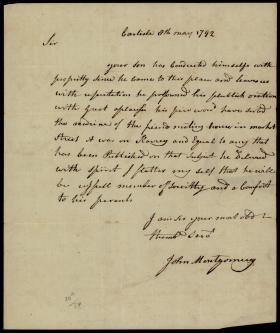 Carlisle 8th may 1792
Sir
your son has Conducted himself with
propriity since he Came to this place and leaves us
with reputation he prononced his publick oration
with Great aplause his piece woud have
the of the frends meting house in market
Street it was on Slavery and Equal to any that
has been Published on that Subject he delivered
with spirit I flatter my self that he will
be usefull member of Society and a Comfort
to his parents
I am Sir your most obdt
Humb Servt
John Montgomery